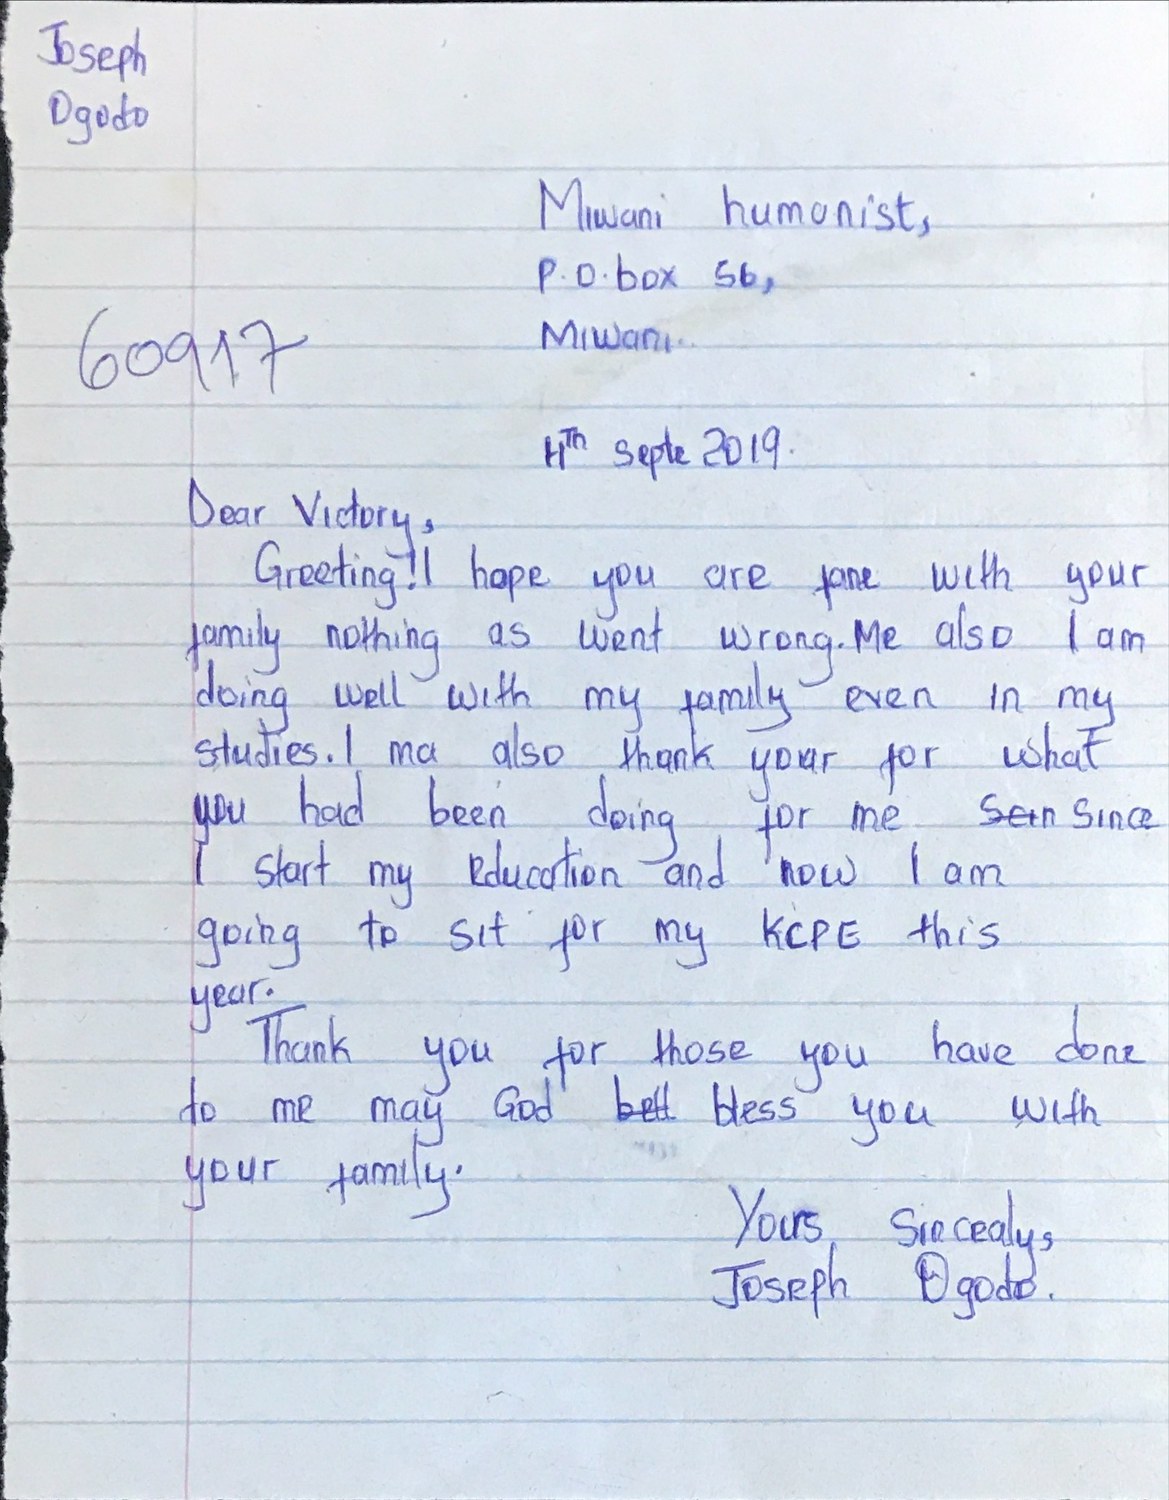 Joseph
Ogodo
Miwani humanist,
P.O.box 56,
Miwani.
60917
11th Septe 2019.
Dear Victory,
Greeting! I hope you are fane with your
family nothing as went wrong. Me also I am
doing well with my family even in my
studies. I ma also thank your for what
you had been doing for me Sein Since
I start my Education and now I am
going to sit for my KCPE this
year.
Thank you for those you have done
to me may God bell bless you with
your family.
Yours Sincealy,
Joseph Ogodo.